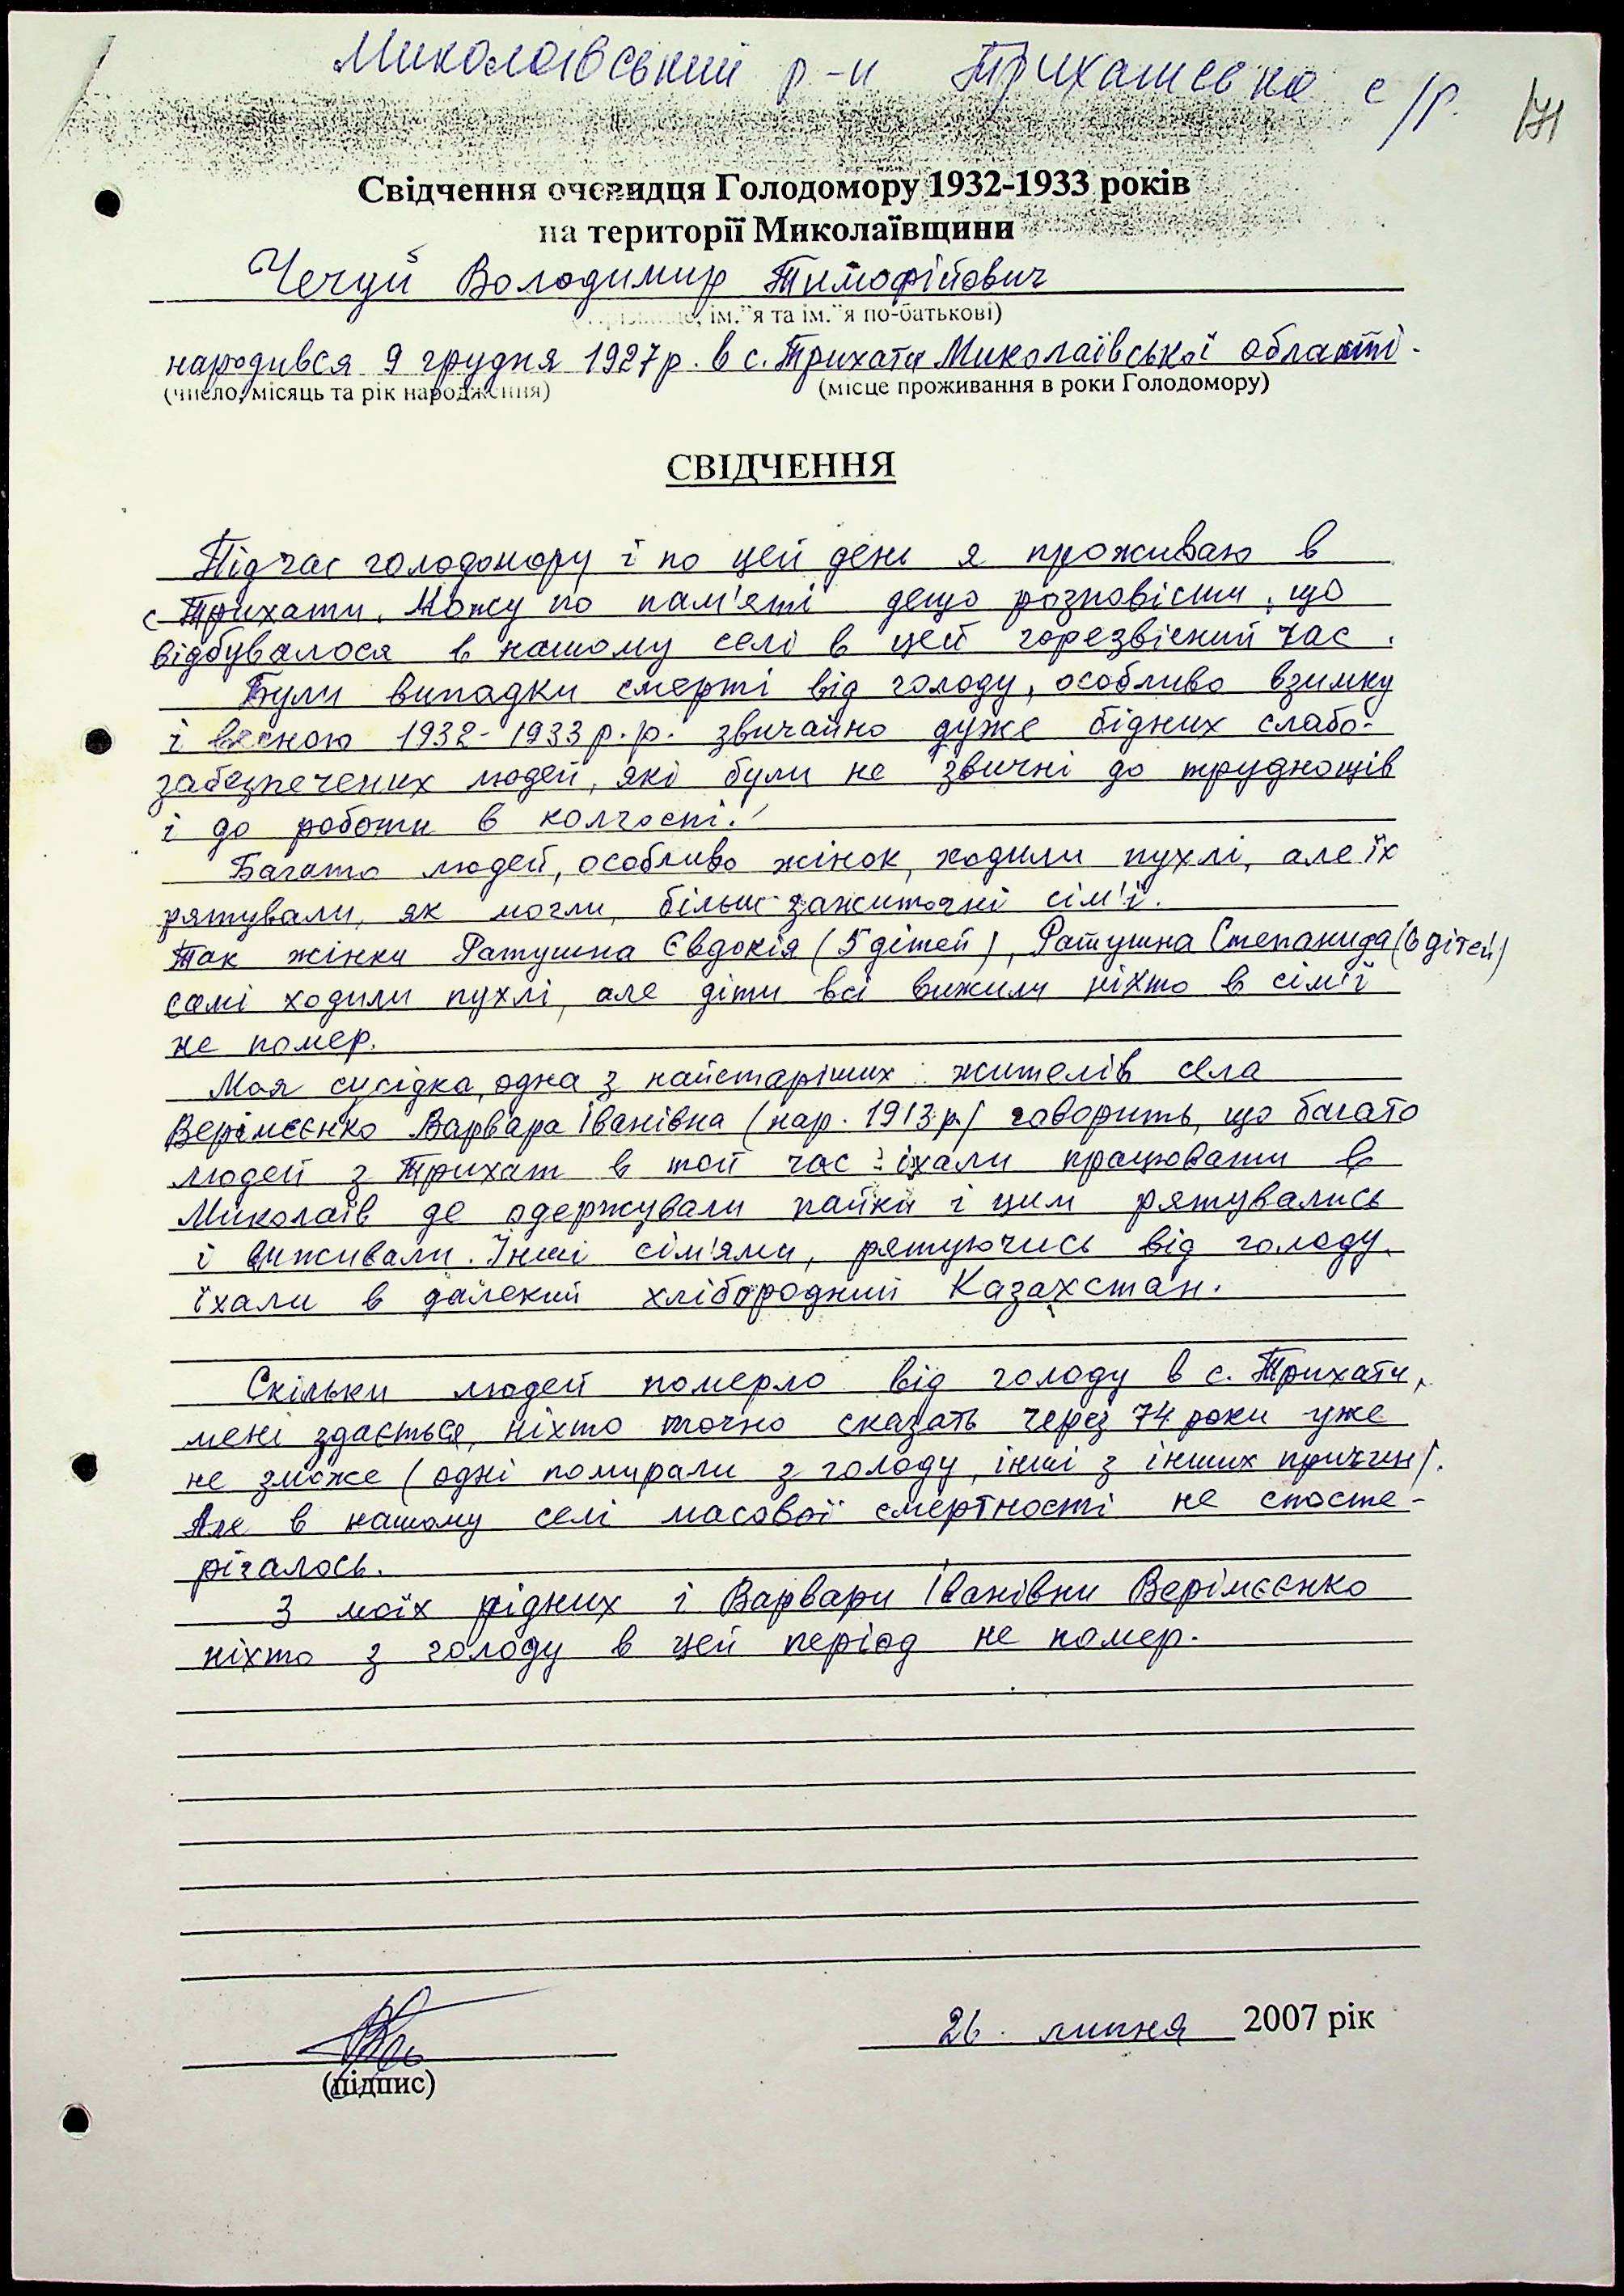 Миколаївський р-н Трихатська с/р.
171
Свідчення очевидця Голодомору 1932-1933 років
на території Миколаївщини
Чечуй Володимир Тимофійович
(прізвище, ім."я та ім."я по-батькові)
народився 9 грудня 1927р. в с. Трихати Миколаївської області.
(число, місяць та рік народження) (місце проживання в роки Голодомору)
СВІДЧЕННЯ
Під час голодомору і по цей день я проживаю в
с. Трихати. Можу по пам'яті дещо розповісти, що
відбувалося в нашому селі в цей горезвісний час.
Були випадки смерті від голоду, особливо взимку
і весною 1932-1933 р.р. звичайно дуже бідних слабо-
забезпечених людей, які були не звичні до труднощів
і до роботи в колгоспі.
Багато людей, особливо жінок, ходили пухлі, але їх
рятували, як могли, більш зажиточні сім'ї.
Так жінки Ратушна Євдокія (5 дітей), Ратушна Степанида (6 дітей)
самі ходили пухлі, але діти всі вижили ніхто в сім'ї
не помер.
Моя сусідка, одна з найстаріших жителів села
Верімєєнко Варвара Іванівна (нар. 1913 р.) говорить, що багато
людей з Трихат в той час їхали працювати в
Миколаїв де одержували пайки і цим рятувались
і виживали. Інші сім'ями, рятуючись від голоду,
їхали в далекий хлібородний Казахстан.
Скільки людей померло від голоду в с. Трихати,
мені здається, ніхто точно сказать через 74 роки уже
не зможе (одні помирали з голоду, інші з інших причин).
Але в нашому селі масової смертності не спосте-
рігалось.
З моїх рідних і Варвари Іванівни Верімєєнко
ніхто з голоду в цей період не помер.
26 липня 2007 рік
(підпис)